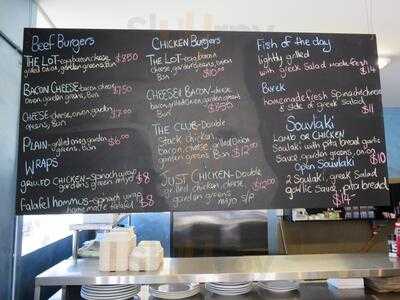 Beef Burgers
THE LOT-egg, bacon cheese $8.50
grilled onion, garden greens, Bun
BACON CHEESE-bacon cheese $7.50
onion, garden greens, Bun
CHEESE-cheese, onion, garden $7.00
greens, Bun
PLAIN-grilled onion, garden $6.00
greens, Bun
WRAPS
GRILLED CHICKEN-Spanach wrap
garden greens mayo $8
Falafel hommus-spanach wrap
home made falafel $8
CHICKEN Burgers
THE LOT-egg bacon
cheese, garden greens, onion
Bun $10.00
CHEESE & BACON-cheese,
bacon, grilled Onion, garden greens
THE CLUB-Double
Stack chicken,
bacon cheese, grilled Onion
garden greens Bun $12.00
JUST CHICKEN-Double
grilled chicken, cheese, $12.00
garden greens
mayo S/P
Fish of the day
lightly grilled
with greek Salad made fresh
$14
Burek
homemade fresh Spinach cheese
& side of greek Salad
$11
Souvlaki
LAMB OR CHICKEN
Souvlaki with pita bread garlic
Sauce, garden greens, onion $10
Open Souvlaki
2 Souvlaki, greek Salad
garlic Sauce, pita bread
$14